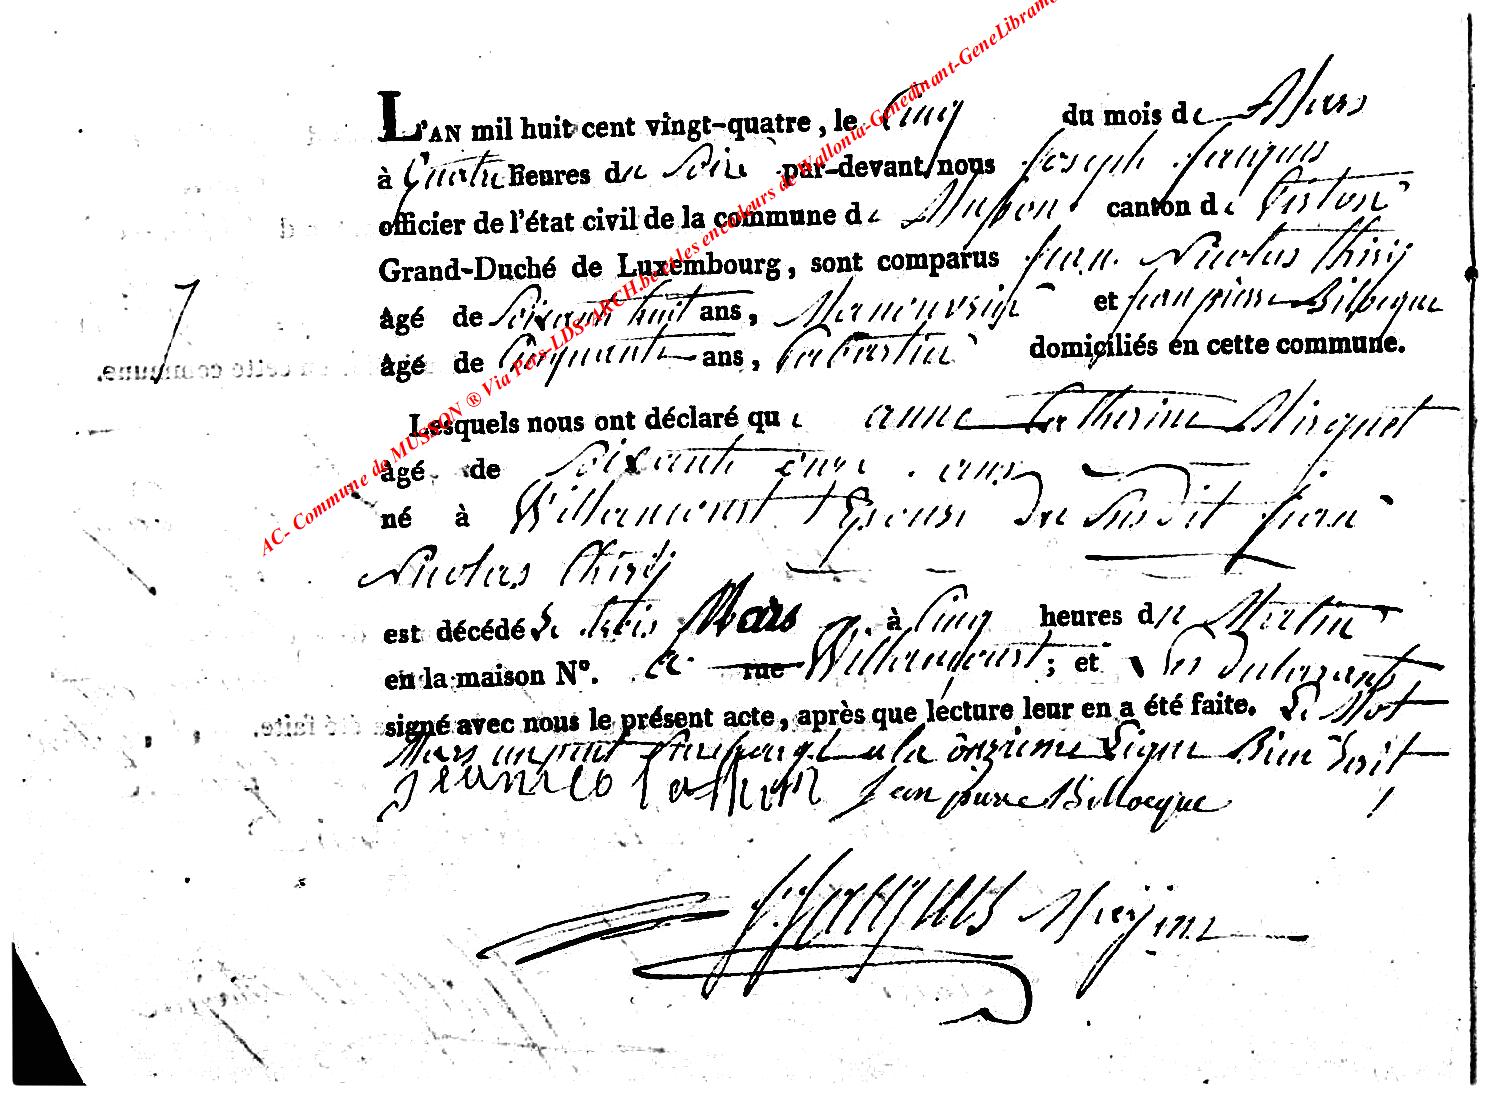 AC- Commune de MUSSON ® Via Pers-LDS-ARCH.be et les encodeurs de Wallonia-Genedinant-GeneLibramo
L'AN mil huit cent vingt-quatre, le Cinq du mois de Mars
à Quatre heures du Soir par-devant nous Joseph Jacques
officier de l'état civil de la commune de Musson canton de Virton
Grand-Duché de Luxembourg, sont comparus Jean Nicolas Thiry
âgé de Soixante huit ans, Manouvrier et Jean pierre Billocque
âgé de Cinquante ans, Cabartier domiciliés en cette commune.
7
Lesquels nous ont déclaré que anne Catherine Mirguet
âgé de Soixante onze ans
né à Willancourt Epouse du Susdit Jean
Nicolas Thiry
est décédé le trois Mars à Cinq heures du Matin
en la maison N°. a rue Willancourt ; et les
signé avec nous le présent acte, après que lecture leur en a été faite. Le Mot
Mars a la onzieme Ligne Bien Ecrit
Jean pierre Billocque
J. Jacques